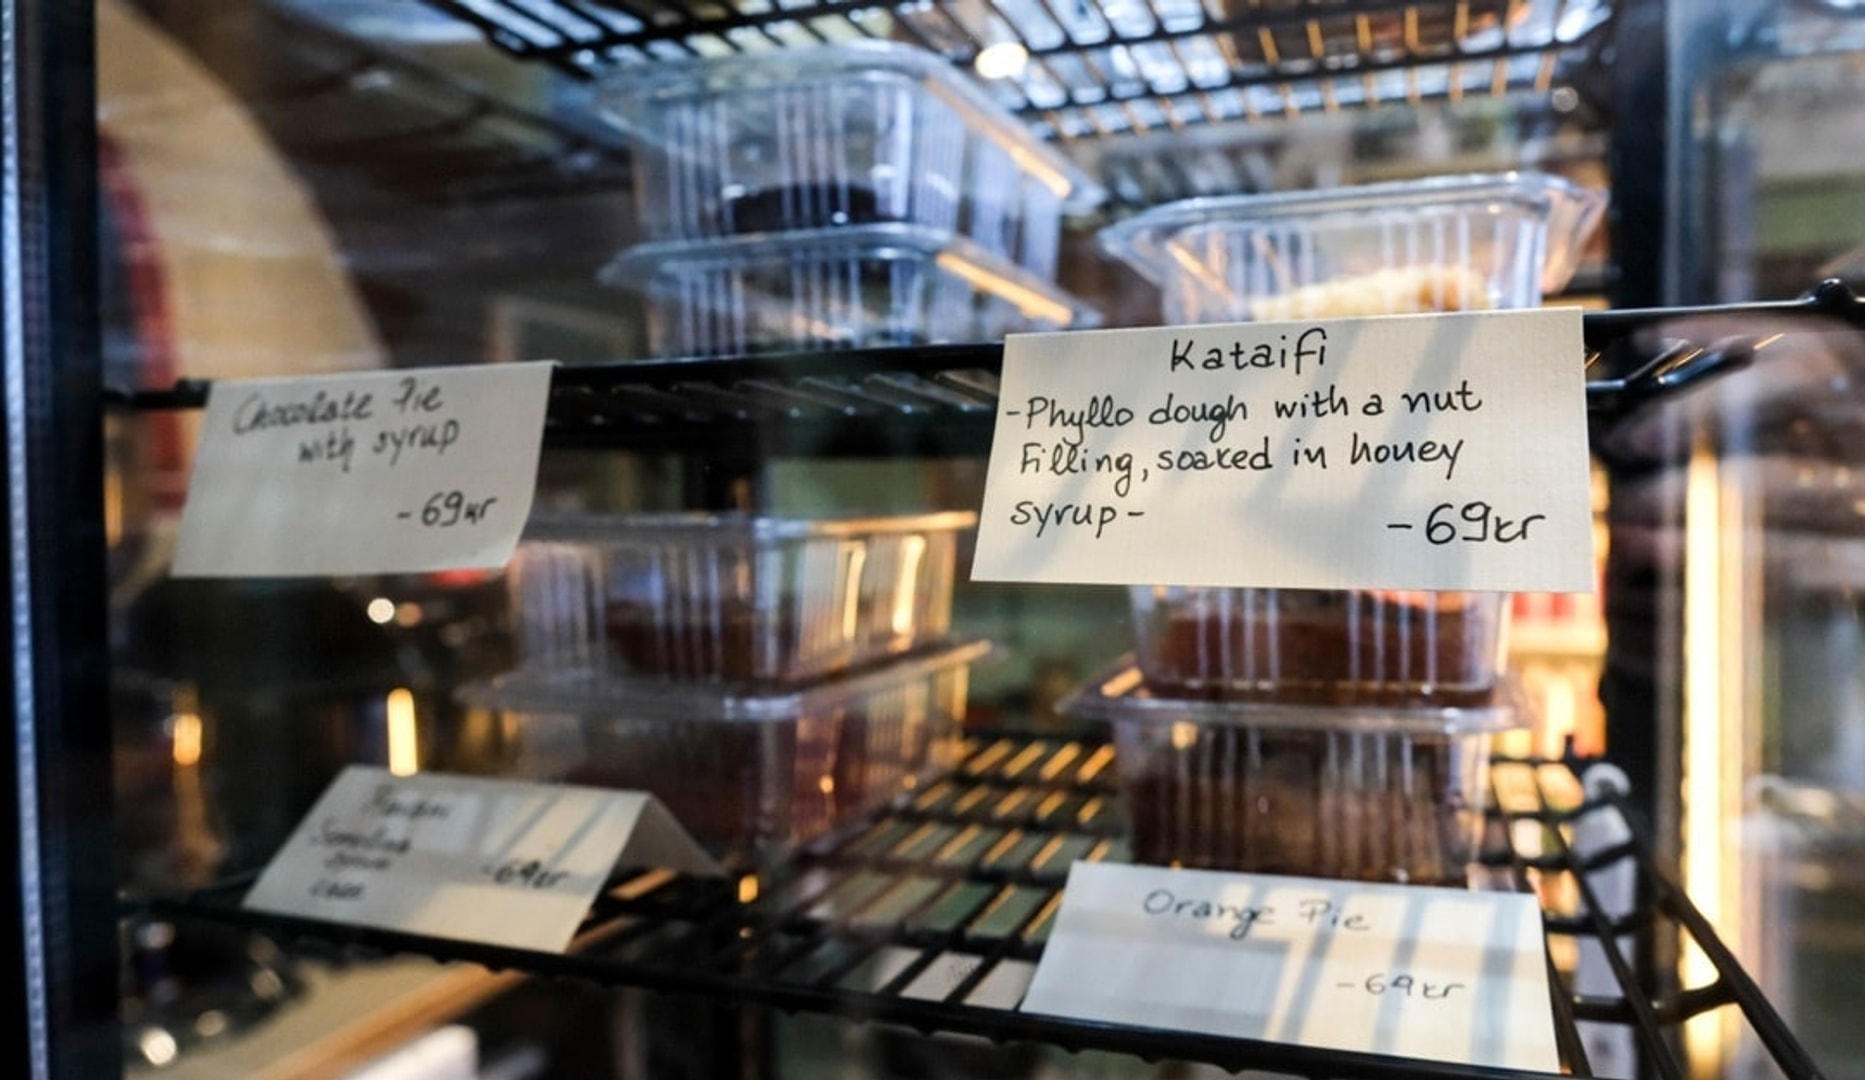 Chocolate Pie
with syrup
-69kr
Kataifi
-Phyllo dough with a nut
Filling, soaked in honey
syrup-
-69kr
Semolina
-69kr
Orange Pie
-69kr